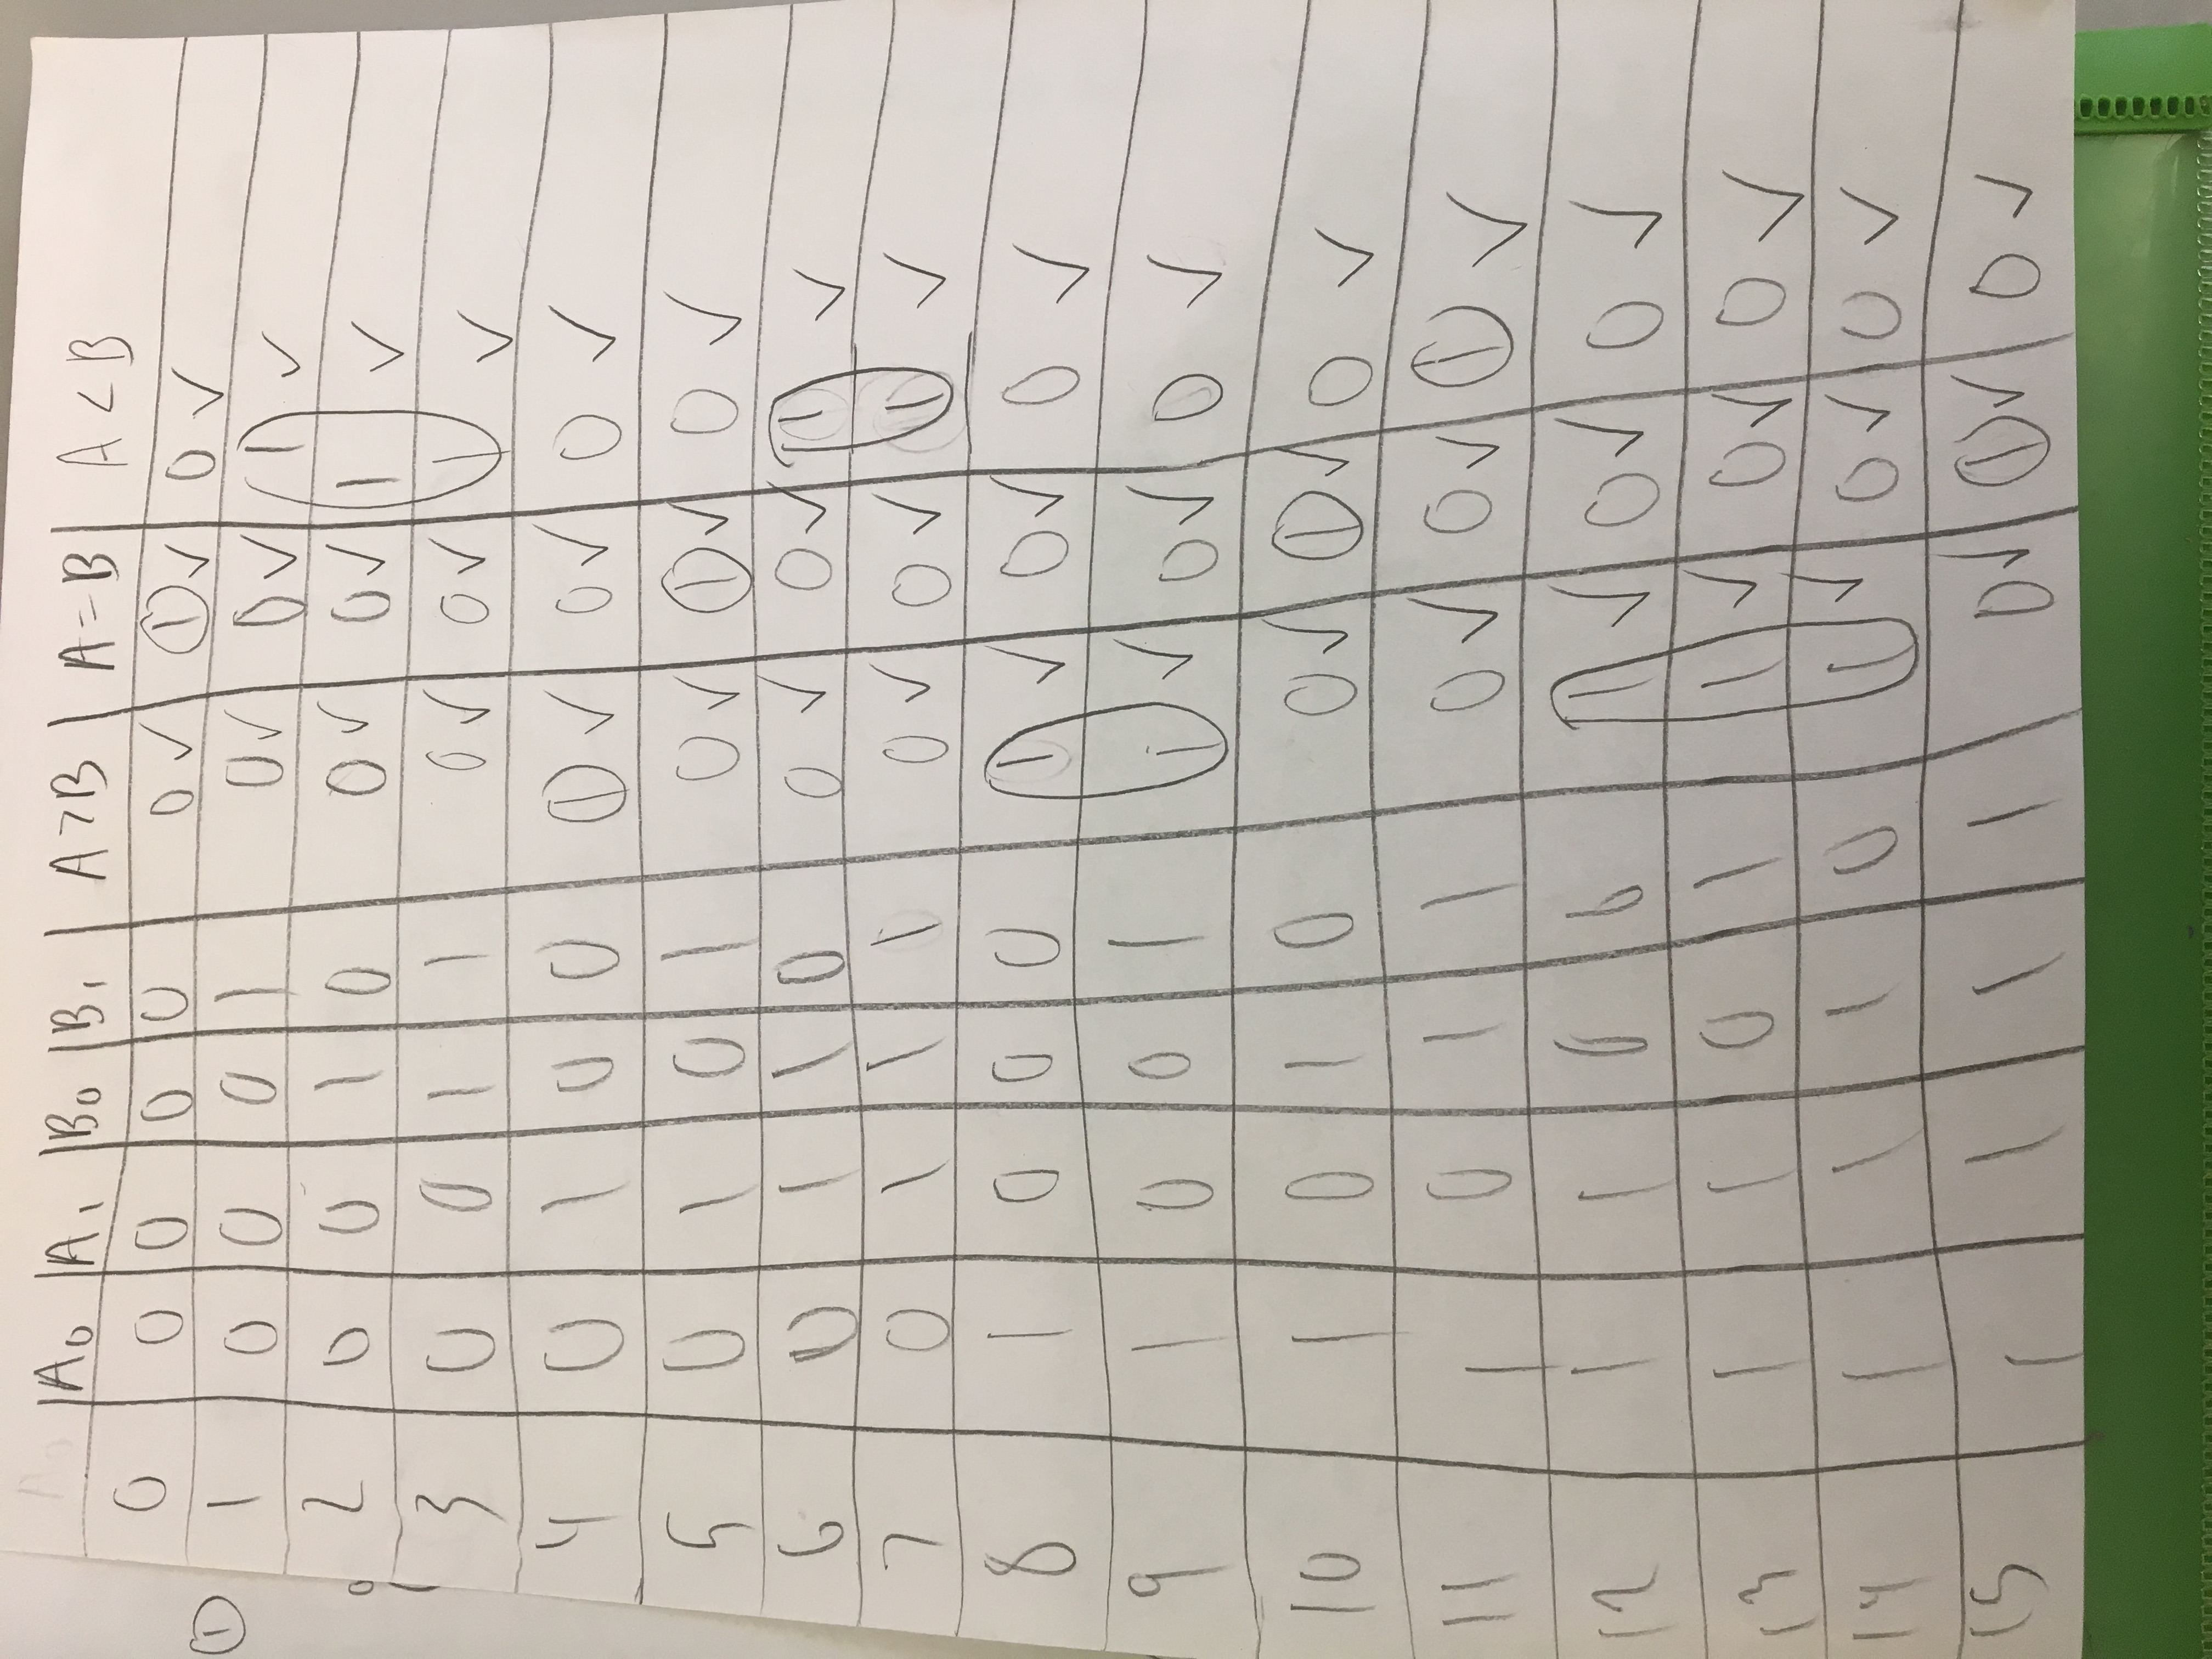 A₀ A₁ B₀ B₁ A>B A=B A<B
0 0 0 0 0 0 ✓ 1 ✓ 0 ✓
① 1 0 0 0 1 0 ✓ 0 ✓ 1 ✓
2 0 0 1 0 0 ✓ 0 ✓ 1 ✓
3 0 0 1 1 0 ✓ 0 ✓ 1 ✓
4 0 1 0 0 1 ✓ 0 ✓ 0 ✓
5 0 1 0 1 0 ✓ 1 ✓ 0 ✓
6 0 1 1 0 0 ✓ 0 ✓ 1 ✓
7 0 1 1 1 0 ✓ 0 ✓ 1 ✓
8 1 0 0 0 1 ✓ 0 ✓ 0 ✓
9 1 0 0 1 1 ✓ 0 ✓ 0 ✓
10 1 0 1 0 0 ✓ 1 ✓ 0 ✓
11 1 0 1 1 0 ✓ 0 ✓ 1 ✓
12 1 1 0 0 1 ✓ 0 ✓ 0 ✓
13 1 1 0 1 1 ✓ 0 ✓ 0 ✓
14 1 1 1 0 1 ✓ 0 ✓ 0 ✓
15 1 1 1 1 0 ✓ 1 ✓ 0 ✓